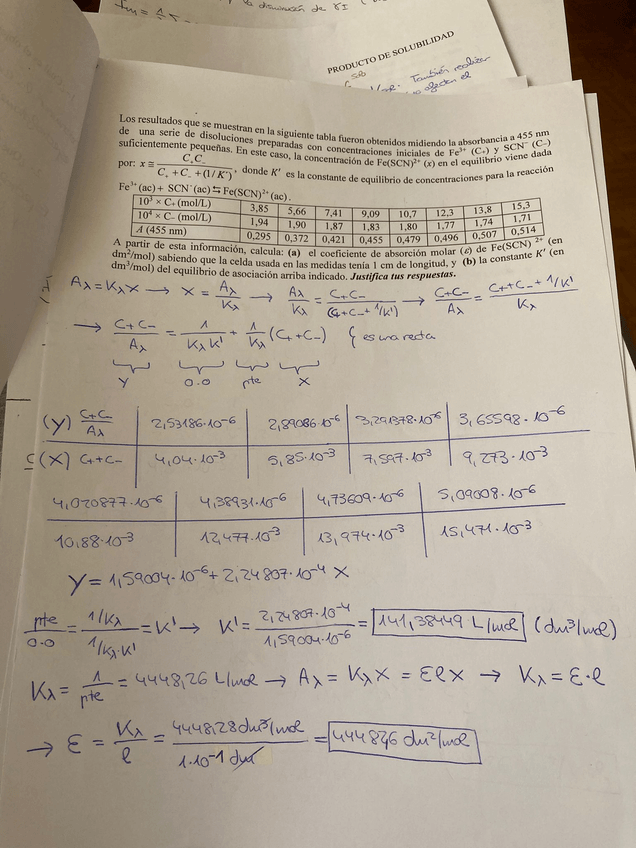 PRODUCTO DE SOLUBILIDAD
También realizar
Los resultados que se muestran en la siguiente tabla fueron obtenidos midiendo la absorbancia a 455 nm
de una serie de disoluciones preparadas con concentraciones iniciales de Fe³⁺ (C₊) y SCN⁻ (C₋)
suficientemente pequeñas. En este caso, la concentración de Fe(SCN)²⁺ (x) en el equilibrio viene dada
por: x ≅ C₊C₋ / (C₊ + C₋ + (1/K')), donde K' es la constante de equilibrio de concentraciones para la reacción
Fe³⁺(ac) + SCN⁻(ac) ⇆ Fe(SCN)²⁺(ac).
10³ × C₊ (mol/L) 3,85 5,66 7,41 9,09 10,7 12,3 13,8 15,3
10⁴ × C₋ (mol/L) 1,94 1,90 1,87 1,83 1,80 1,77 1,74 1,71
A (455 nm) 0,295 0,372 0,421 0,455 0,479 0,496 0,507 0,514
A partir de esta información, calcula: (a) el coeficiente de absorción molar (ε) de Fe(SCN)²⁺ (en
dm²/mol) sabiendo que la celda usada en las medidas tenía 1 cm de longitud, y (b) la constante K' (en
dm³/mol) del equilibrio de asociación arriba indicado. Justifica tus respuestas.
Aλ = Kλ X → X = Aλ/Kλ → Aλ/Kλ = C+C-/(C+ + C- + 1/K') → C+C-/Aλ = (C+ + C- + 1/K')/Kλ
→ C+C-/Aλ = 1/(Kλ K') + 1/Kλ (C+ + C-) { es una recta
Y 0.0 pte X
(Y) C+C-/Aλ 2,53186·10⁻⁶ 2,89086·10⁻⁶ 3,291378·10⁻⁶ 3,65598·10⁻⁶
(X) C+ + C- 4,04·10⁻³ 5,85·10⁻³ 7,597·10⁻³ 9,273·10⁻³
4,020877·10⁻⁶ 4,38931·10⁻⁶ 4,73609·10⁻⁶ 5,09008·10⁻⁶
10,88·10⁻³ 12,477·10⁻³ 13,974·10⁻³ 15,471·10⁻³
Y = 1,59004·10⁻⁶ + 2,24807·10⁻⁴ X
pte/0.0 = (1/Kλ)/(1/Kλ·K') = K' → K' = 2,24807·10⁻⁴/1,59004·10⁻⁶ = 141,38449 L/mol (dm³/mol)
Kλ = 1/pte = 4448,26 L/mol → Aλ = Kλ X = Ɛ l X → Kλ = Ɛ·l
→ Ɛ = Kλ/l = 4448,28 dm³/mol / 1·10⁻¹ dm = 44482,6 dm²/mol